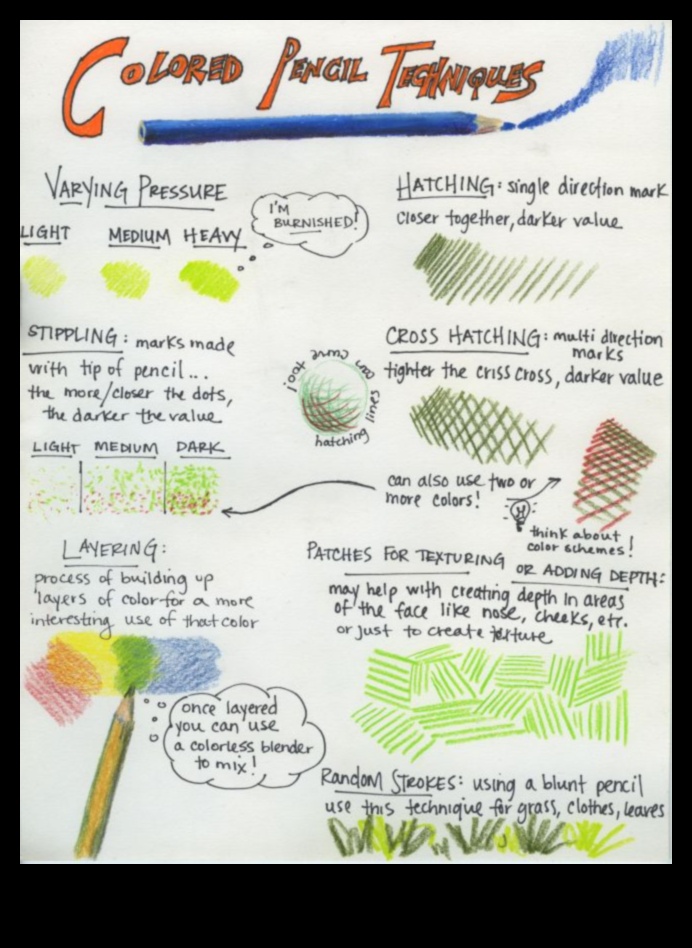 COLORED PENCIL TECHNIQUES
VARYING PRESSURE
LIGHT MEDIUM HEAVY
I'M
BURNISHED!
HATCHING: single direction mark
closer together, darker value
STIPPLING: marks made
with tip of pencil...
the more/closer the dots,
the darker the value
LIGHT MEDIUM DARK
don't curve your
hatching lines
CROSS HATCHING: multi direction
marks
tighter the criss cross, darker value
can also use two or
more colors!
think about
color schemes!
LAYERING:
process of building up
layers of color for a more
interesting use of that color
once layered
you can use
a colorless blender
to mix!
PATCHES FOR TEXTURING
OR ADDING DEPTH:
may help with creating depth in areas
of the face like nose, cheeks, etc.
or just to create texture
RANDOM STROKES: using a blunt pencil
use this technique for grass, clothes, leaves